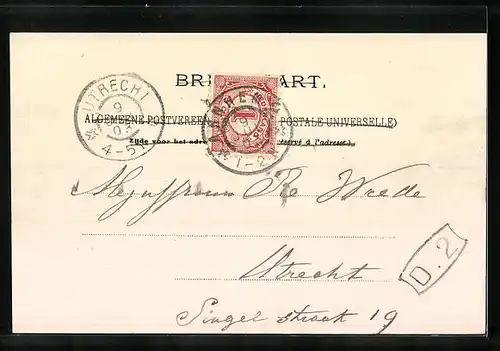 BRI ART.
ALGEMEENE POSTVEREE POSTALE UNIVERSELLE)
Zijde voor het adre servé à l'adresse.)
UTRECHT
9
03
4-5
1
1-2
Mejuffrouw Re Wrede
Utrecht
Singel straat 19
D.2